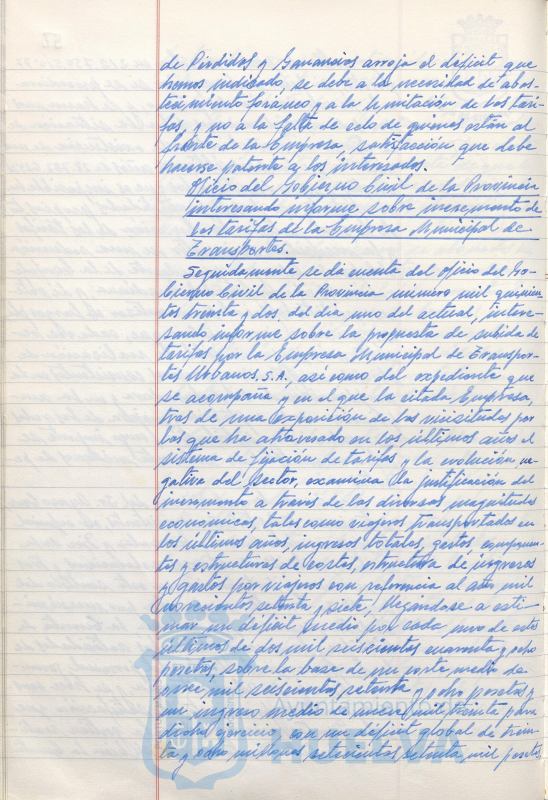 de Pérdidas y Ganancias arroja el déficit que
hemos indicado, se debe a la necesidad de abas-
tecimiento foráneo y a la limitación de las tari-
fas, y no a la falta de celo de quienes están al
frente de la Empresa, satisfacción que debe
hacerse patente a los interesados.
Oficio del Gobierno Civil de la Provincia
interesando informe sobre incremento de
las tarifas de la Empresa Municipal de
Transportes.
Seguidamente se da cuenta del oficio del Go-
bierno Civil de la Provincia número mil quinien-
tos treinta y dos, del día uno del actual, intere-
sando informe sobre la propuesta de subida de
tarifas por la Empresa Municipal de Transpor-
tes Urbanos, S.A., así como del expediente que
se acompaña y en el que la citada Empresa,
tras de una exposición de las vicisitudes por
las que ha atravesado en los últimos años el
sistema de fijación de tarifas y la evolución ne-
gativa del Sector, examina la justificación del
incremento a través de las diversas magnitudes
económicas, tales como viajeros transportados en
los últimos años, ingresos totales, gastos,
y estructuras de costes, estructura de ingresos
y gastos por viajeros con referencia al año mil
novecientos setenta y siete, llegándose a esti-
mar un déficit medio por cada uno de estos
últimos de dos mil seiscientas cuarenta y ocho
pesetas, sobre la base de un coste medio de
once mil seiscientas setenta y ocho pesetas y
un ingreso medio de nueve treinta para
dicho ejercicio, con un déficit global de trein-
ta y ocho millones setecientas setenta mil pesetas
Ayuntamiento de
HUELVA